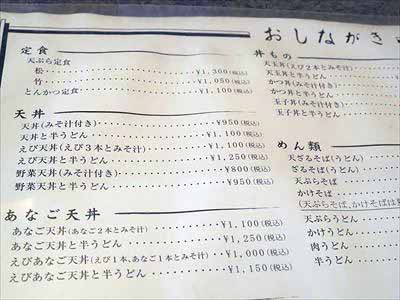 おしながき
定食
天ぷら定食
松 ¥1,300(税込)
竹 ¥1,050(税込)
とんかつ定食 ¥1,100(税込)
天丼
天丼(みそ汁付き) ¥950(税込)
天丼と半うどん ¥1,100(税込)
えび天丼(えび3本とみそ汁) ¥1,100(税込)
えび天丼と半うどん ¥1,250(税込)
野菜天丼(みそ汁付き) ¥800(税込)
野菜天丼と半うどん ¥950(税込)
あなご天丼
あなご天丼(あなご2本とみそ汁) ¥1,100(税込)
あなご天丼と半うどん ¥1,250(税込)
えびあなご天丼(えび1本、あなご1本とみそ汁) ¥1,000(税込)
えびあなご天丼と半うどん ¥1,150(税込)
丼もの
天玉丼(えび2本とみそ汁)
天玉丼と半うどん
かつ丼(みそ汁付き)
かつ丼と半うどん
玉子丼(みそ汁付き)
玉子丼と半うどん
めん類
天ざるそば(うどん)
ざるそば(うどん)
天ぷらそば
かけそば
(天ぷらそば、かけそばは
天ぷらうどん
かけうどん
肉うどん
半うどん